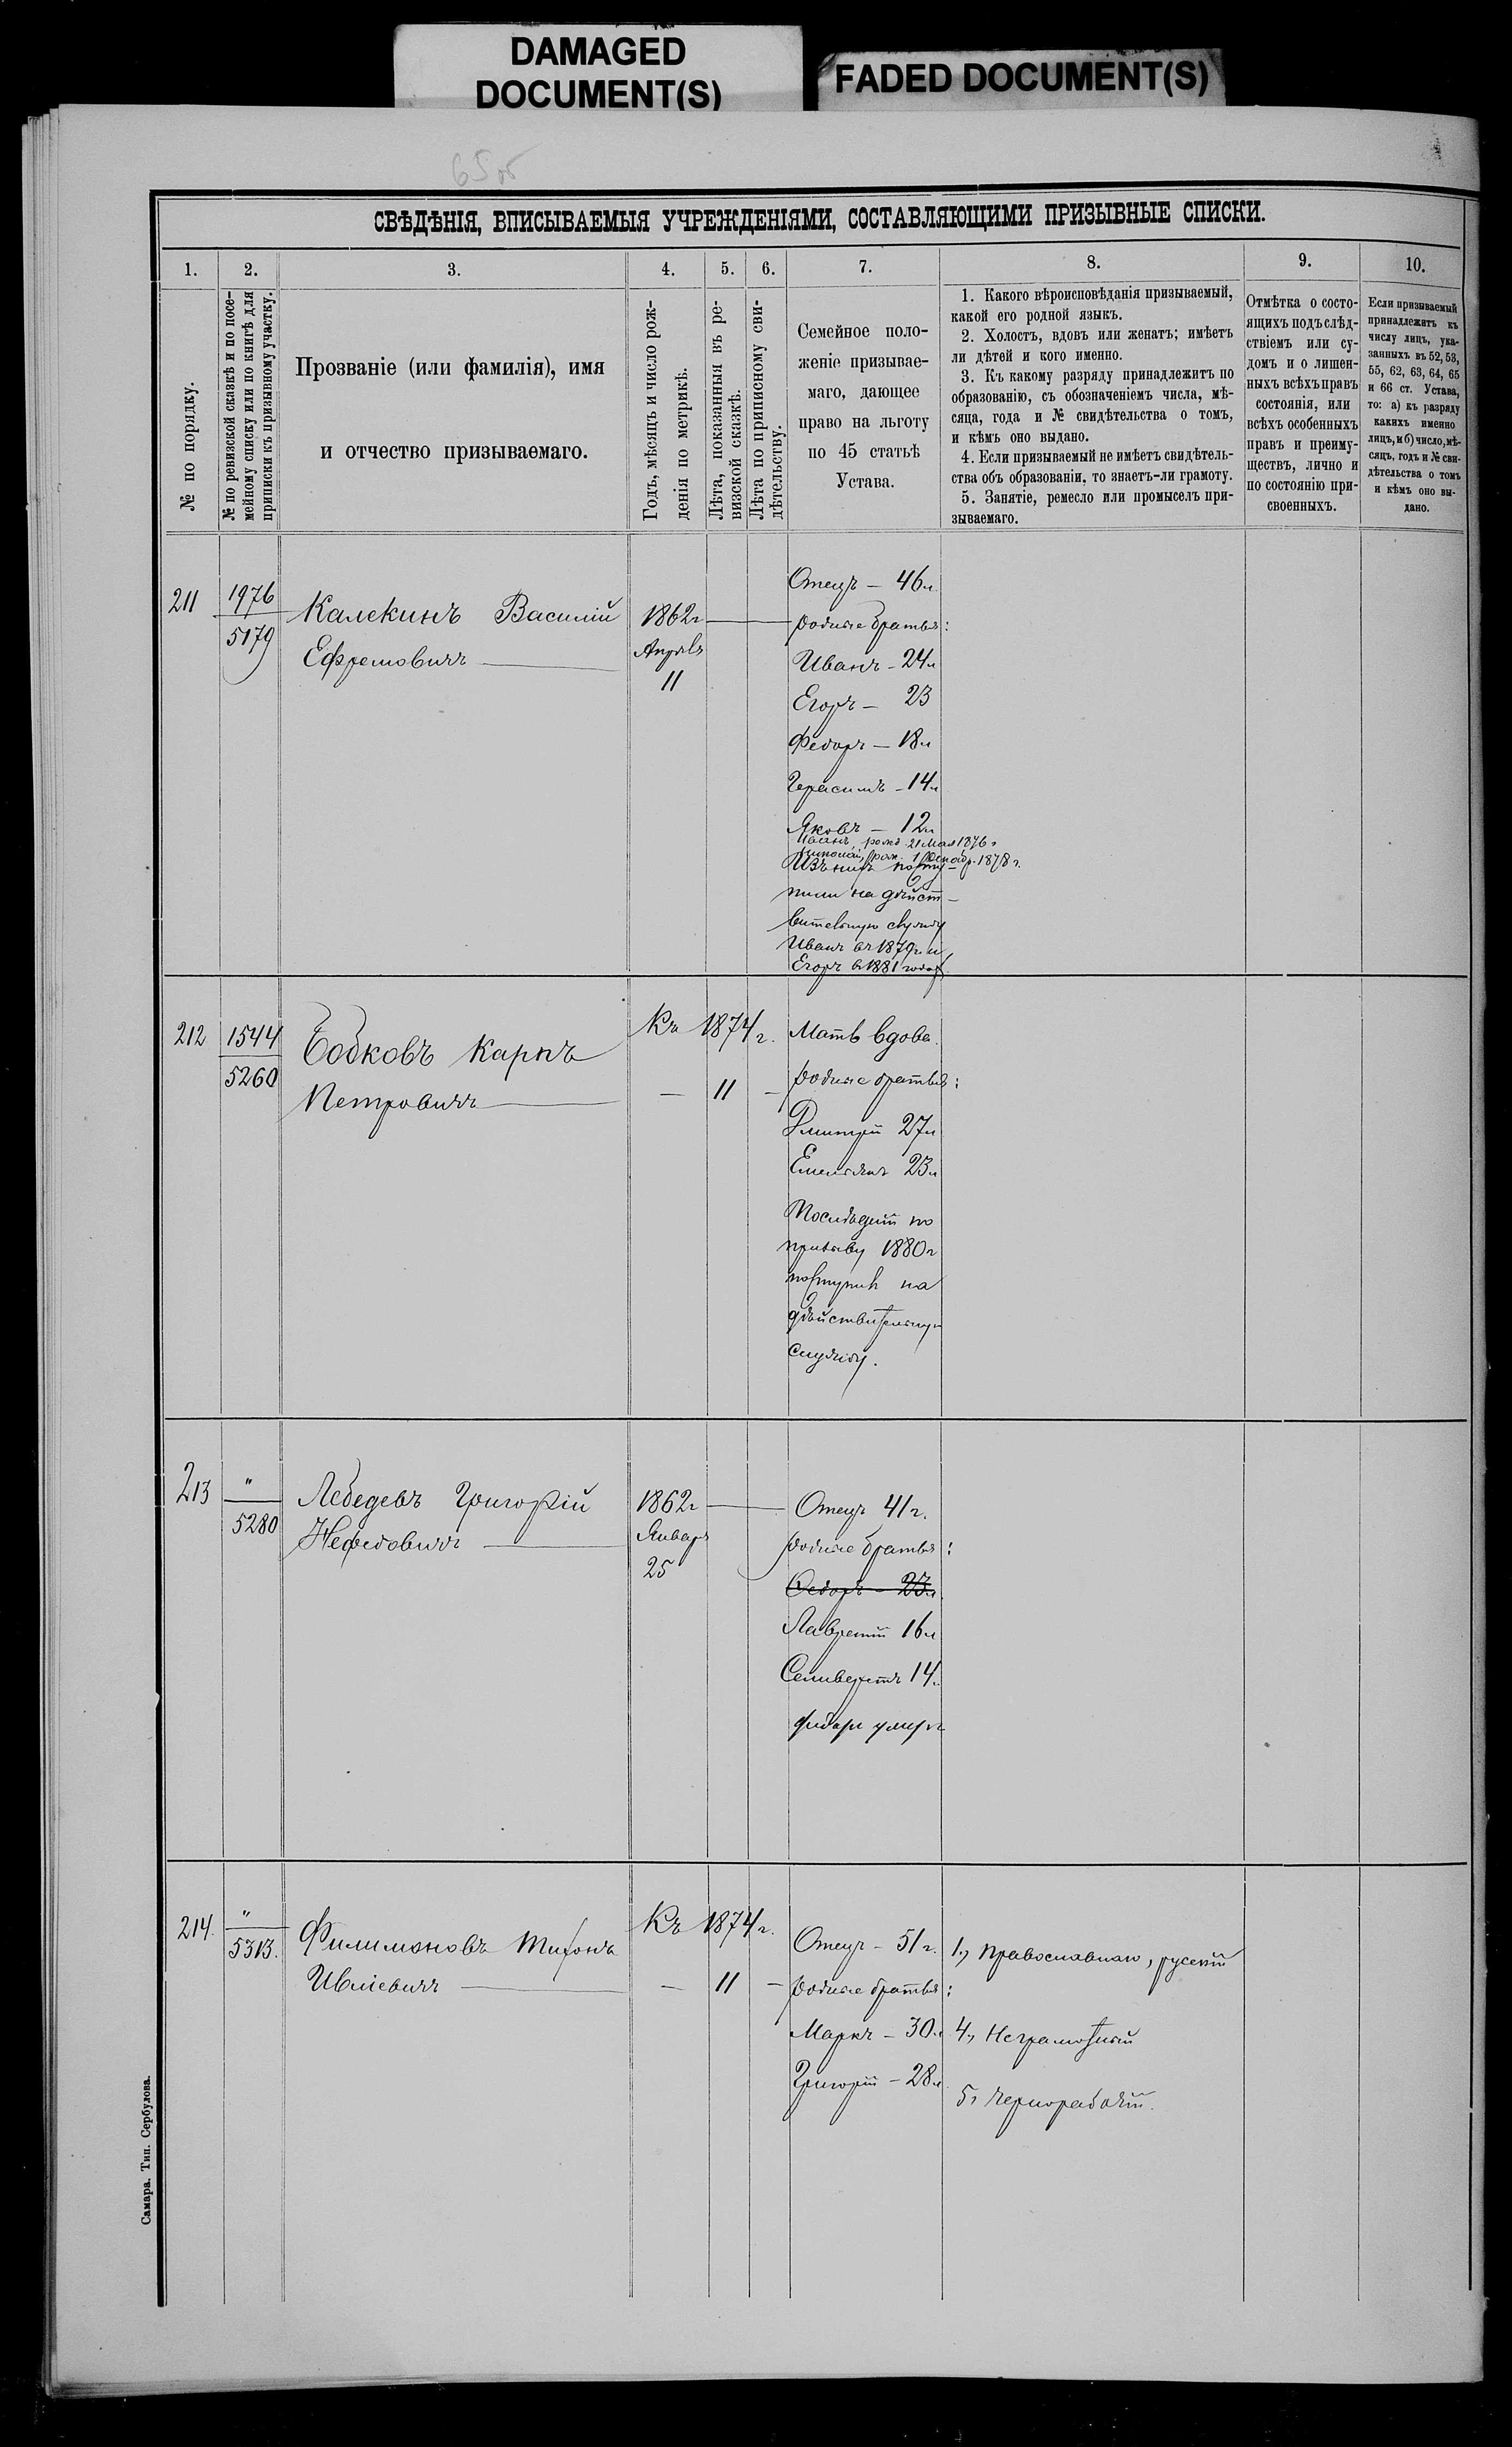 DAMAGED
DOCUMENT(S)
FADED DOCUMENT(S)
65 об
СВѢДѢНІЯ, ВПИСЫВАЕМЫЯ УЧРЕЖДЕНІЯМИ, СОСТАВЛЯЮЩИМИ ПРИЗЫВНЫЕ СПИСКИ.
1.
2.
3.
4.
5.
6.
7.
8.
9.
10.
№ по порядку.
№ по ревизской сказкѣ и по посе-
мейному списку или по книгѣ для
приписки къ призывному участку.
Прозваніе (или фамилія), имя
и отчество призываемаго.
Годъ, мѣсяцъ и число рож-
денія по метрикѣ.
Лѣта, показанныя въ ре-
визской сказкѣ.
Лѣта по приписному сви-
дѣтельству.
Семейное поло-
женіе призывае-
маго, дающее
право на льготу
по 45 статьѣ
Устава.
1. Какого вѣроисповѣданія призываемый,
какой его родной языкъ.
2. Холостъ, вдовъ или женатъ; имѣетъ
ли дѣтей и кого именно.
3. Къ какому разряду принадлежитъ по
образованію, съ обозначеніемъ числа, мѣ-
сяца, года и № свидѣтельства о томъ,
и кѣмъ оно выдано.
4. Если призываемый не имѣетъ свидѣтель-
ства объ образованіи, то знаетъ-ли грамоту.
5. Занятіе, ремесло или промыселъ при-
зываемаго.
Отмѣтка о состо-
ящихъ подъ слѣд-
ствіемъ или су-
домъ и о лишен-
ныхъ всѣхъ правъ
состоянія, или
всѣхъ особенныхъ
правъ и преиму-
ществъ, лично и
по состоянію при-
своенныхъ.
Если призываемый
принадлежитъ къ
числу лицъ, ука-
занныхъ въ 52, 53,
55, 62, 63, 64, 65
и 66 ст. Устава,
то: а) къ разряду
какихъ именно
лицъ, и б) число, мѣ-
сяцъ, годъ и № сви-
дѣтельства о томъ
и кѣмъ оно вы-
дано.
211
1976
5179
Калекинъ Василій
Ефремовичъ
1862г
Апрѣля
11
Отецъ – 46л
родные братья:
Иванъ – 24л
Егоръ – 23
Федоръ – 18л
Герасимъ – 14л
Яковъ – 12л
Иванъ, рожд. 21 Мая 1876 г
Николай, рож. 1 Декабр. 1878 г.
Изъ нихъ посту-
пили на дѣйст-
вительную службу
Иванъ въ 1879г. и
Егоръ в 1881 году
212
1544
5260
Бобковъ Карпъ
Петровичъ
Къ 1874 г.
– 11 –
Мать вдова.
родные братья:
Дмитрій 27л
Емельянъ 23л
Послѣдній по
призыву 1880г
поступилъ на
дѣйствительную
службу.
213
"
5280
Лебедевъ Григорій
Нефедовичъ
1862г
Январ
25
Отецъ 41г.
родные братья:
Федоръ – 23л
Лаврентій 16л
Селиверстъ 14л
Федоръ умеръ
214.
"
5313.
Филимоновъ Тихонъ
Ивлиевичъ
Къ 1874г.
– 11 –
Отецъ – 51г.
родные братья:
Маркъ – 30л
Григорій – 28л
1, Православнаго, русскій
4, Неграмотный
5, чернорабочій.
Самара. Тип. Сербулова.